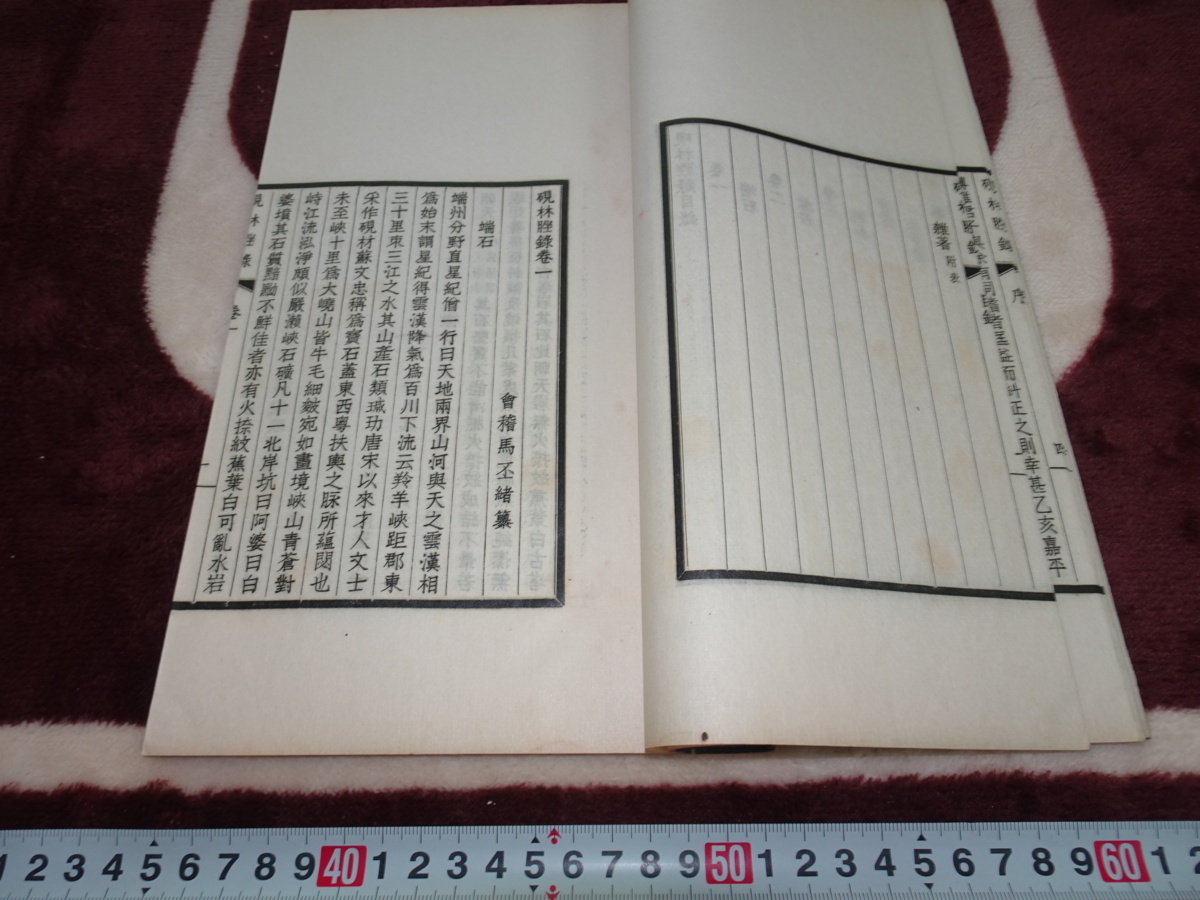 硯林脞錄卷一
會稽馬丕緒纂
端石
端州分野直星紀僧一行曰天地兩界山河與天之雲漢相
爲始末謂星紀得雲漢降氣爲百川下流云羚羊峽距郡東
三十里束三江之水其山產石類珷玏唐宋以來才人文士
采作硯材蘇文忠稱爲寶石蓋東西粵扶輿之脉所蘊閟也
未至峽十里爲大嶢山皆牛毛細皴宛如畫境峽山青蒼對
峙江流泓淨頗似嚴瀨峽石礦凡十一北岸坑曰阿婆曰白
婆墳其石質黯黝不鮮佳者亦有火捺紋蕉葉白可亂水岩
硯林脞錄 卷一 一
雜著 附表
硯林脞錄 序 四
而糾正之則幸甚乙亥嘉平
1 2 3 4 5 6 7 8 9 40 1 2 3 4 5 6 7 8 9 50 1 2 3 4 5 6 7 8 9 60 1 2